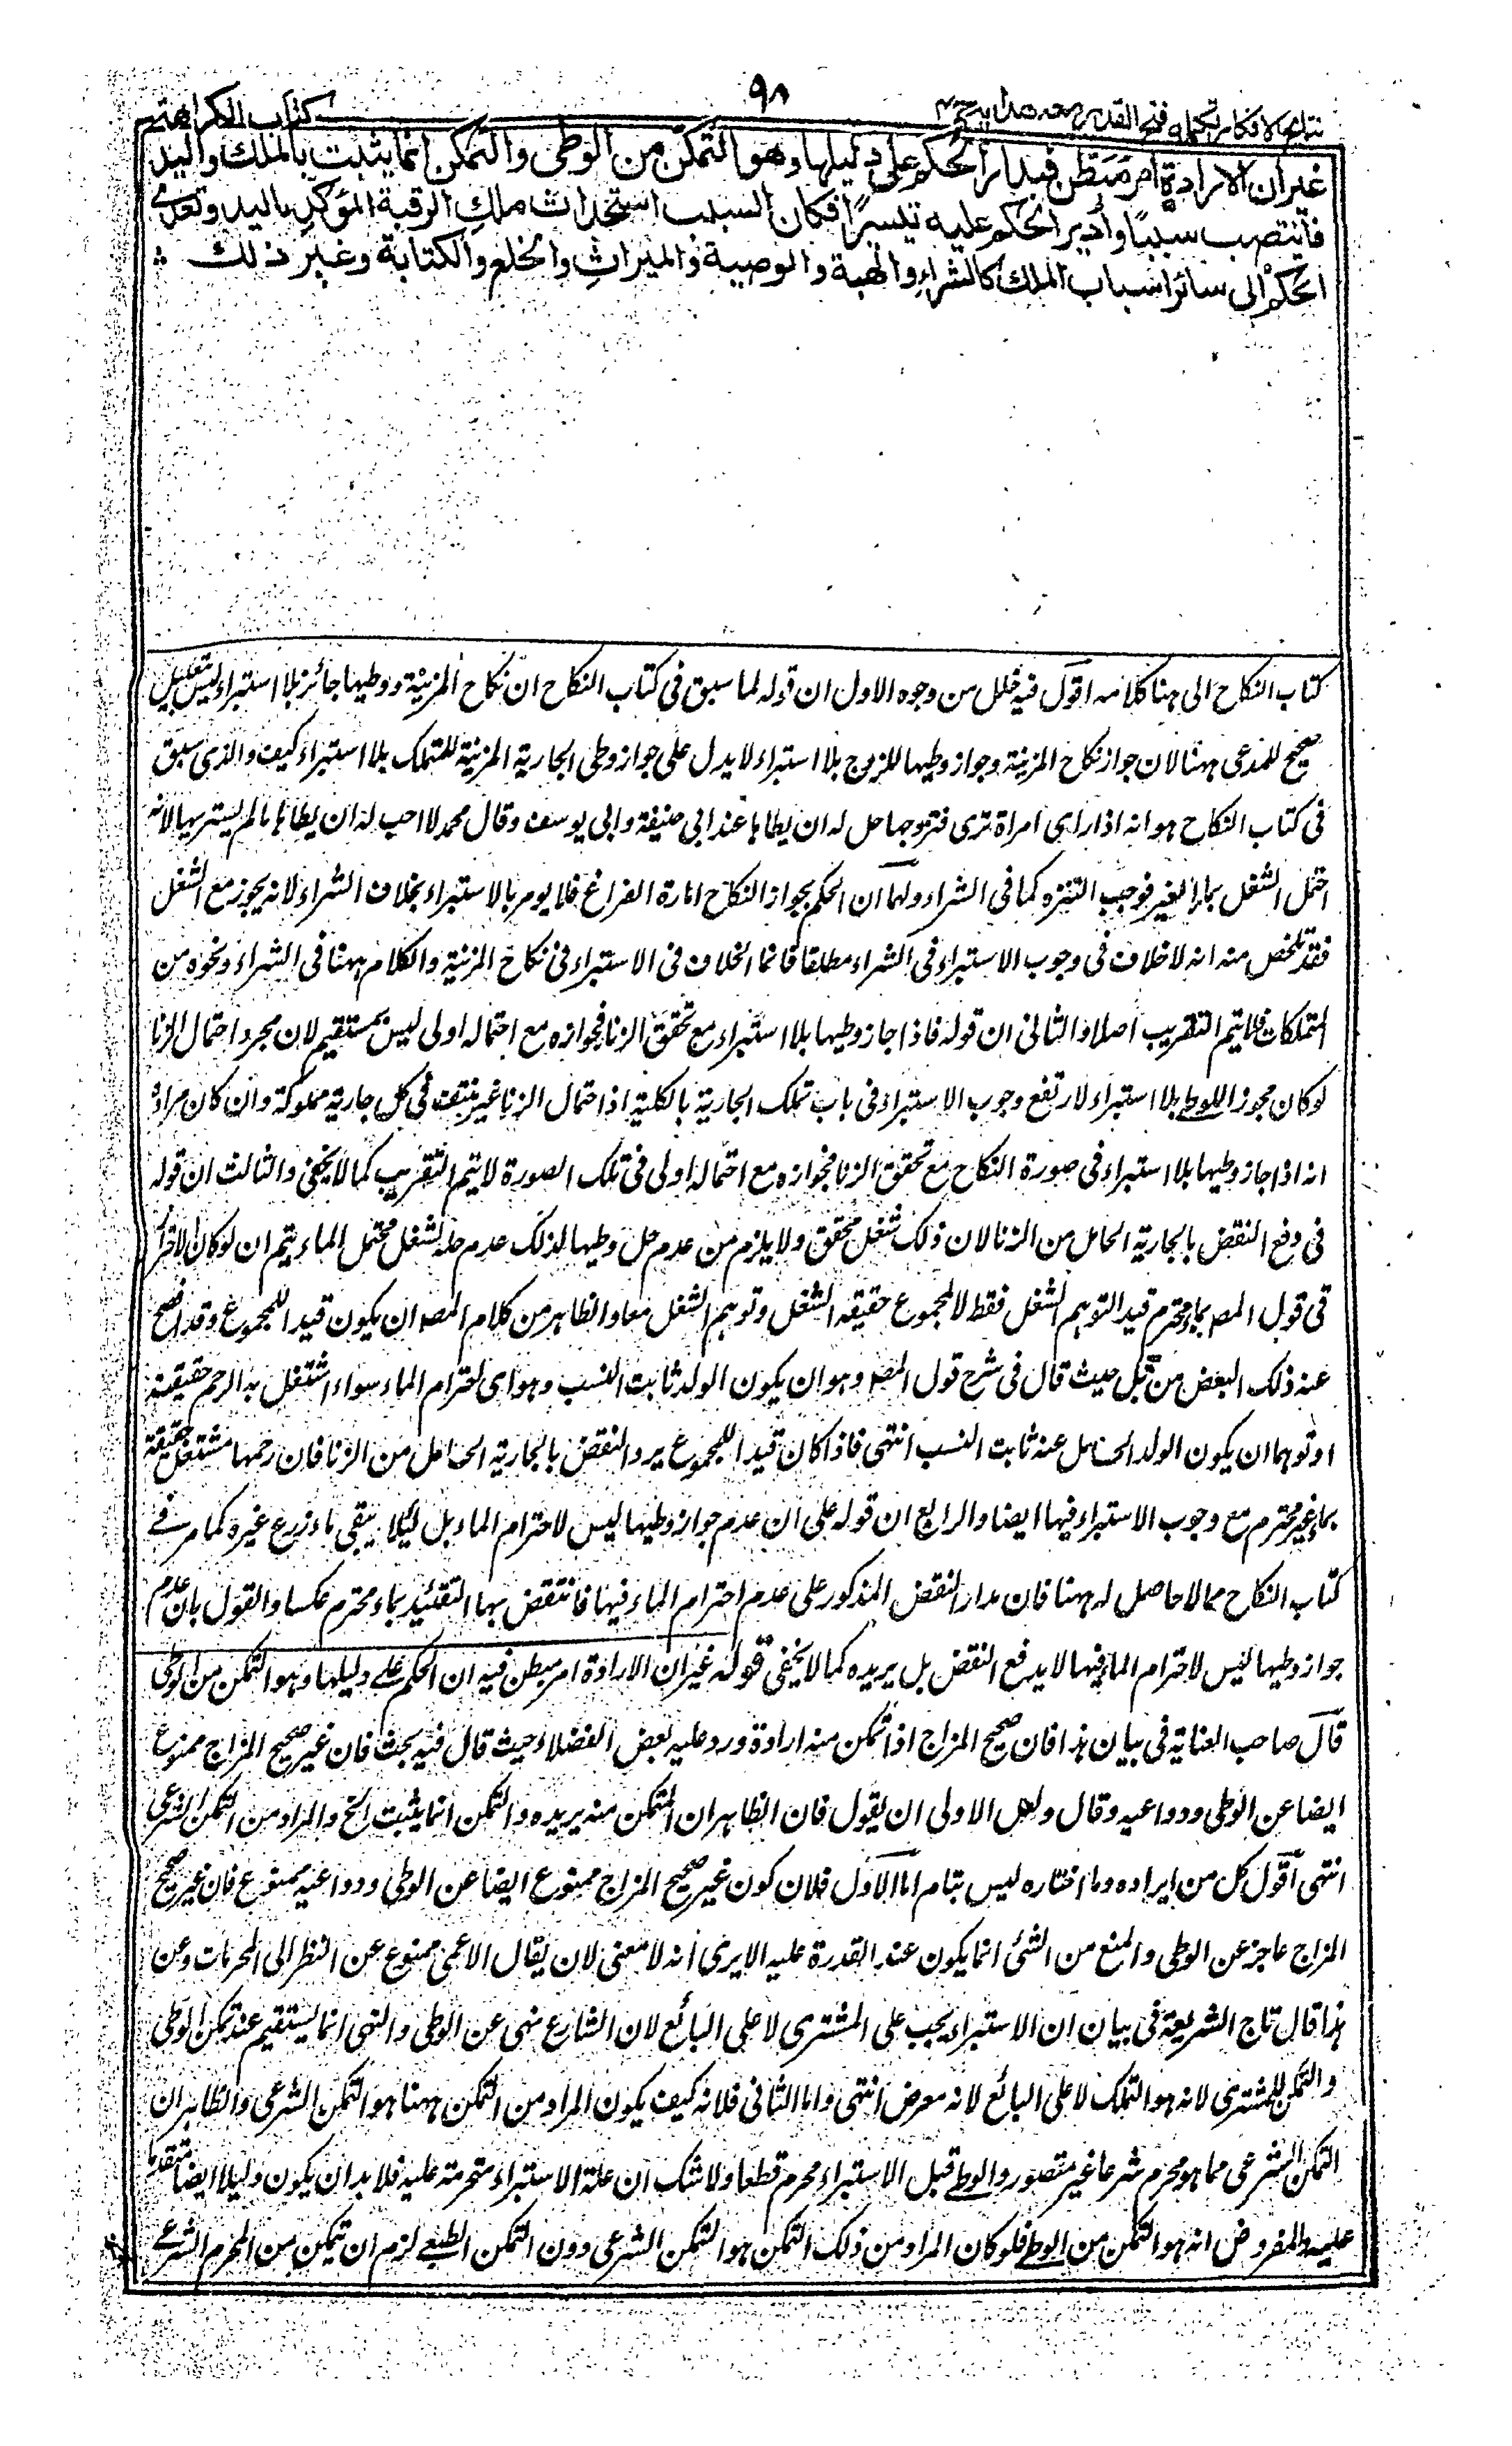 نتائج الافكار تكملہ فتح القدیر مع ھدایہ ج ۴
٩٨
كتاب الكراهية
غير ان الارادة امر مبطن فيدار الحكم على دليلها وهو التمكن من الوطى والتمكن انما يثبت بالملك واليد
فانتصب سببا وادير الحكم عليه تيسيرا فكان السبب استحداث ملك الرقبة المؤكد باليد وتعدى
الحكم الى سائر اسباب الملك كالشراء والهبة والوصية والميراث والخلع والكتابة وغير ذلك
كتاب النكاح الى هنا كلامه اقول فيه خلل من وجوه الاول ان قوله لما سبق فى كتاب النكاح ان نكاح المزنية ووطيها جائز بلا استبراء ليس بتعليل
صحيح للمدعى ههنا لان جواز نكاح المزنية وجواز وطيها للزوج بلا استبراء لا يدل على جواز وطى الجارية المزنية للمتملك بلا استبراء كيف والذى سبق
فى كتاب النكاح هو انه اذا راى امراة تزنى فتزوجها حل له ان يطاها عند ابى حنيفة وابى يوسف وقال محمد لا احب له ان يطاها ما لم يستبريها لانه
احتمل الشغل بماء الغير فوجب التنزه كما فى الشراء ولهما ان الحكم بجواز النكاح امارة الفراغ فلا يومر بالاستبراء بخلاف الشراء لانه يجوز مع الشغل
فقد تلخص منه انه لا خلاف فى وجوب الاستبراء فى الشراء مطلقا فانما الخلاف فى الاستبراء فى نكاح المزنية والكلام ههنا فى الشراء ونحوه من
التملكات فلا يتم التقريب اصلا والثانى ان قوله فاذا جاز وطيها بلا استبراء مع تحقق الزنا فجوازه مع احتماله اولى ليس بمستقيم لان مجرد احتمال الزنا
لو كان مجوز اللوطى بلا استبراء لارتفع وجوب الاستبراء فى باب تملك الجارية بالكلية اذ احتمال الزنا غير منتف فى كل جارية مملوكة وان كان مراده
انه اذا جاز وطيها بلا استبراء فى صورة النكاح مع تحقق الزنا فجوازه مع احتماله اولى فى تلك الصورة لا يتم التقريب كما لا يخفى والثالث ان قوله
فى دفع النقض بالجارية الحامل من الزنا لان ذلك شغل محقق ولا يلزم من عدم حل وطيها لذلك عدم حله لشغل محتمل الماء يتم ان لو كان الاحتراز
فى قول المص بماء محترم قيدا لتوهم الشغل فقط لا لمجموع حقيقة الشغل وتوهم الشغل معا والظاهر من كلام المص ان يكون قيدا للمجموع وقد افصح
عنه ذلك البعض من قبل حيث قال فى شرح قول المص وهو ان يكون الولد ثابت النسب وهو اى احترام الماء سواء اشتغل به الرحم حقيقة
او توهما ان يكون الولد الحاصل عنه ثابت النسب انتهى فاذا كان قيدا للمجموع يرد النقض بالجارية الحامل من الزنا فان رحمها مشتغل حقيقة
بماء غير محترم مع وجوب الاستبراء فيها ايضا والرابع ان قوله على ان عدم جواز وطيها ليس لاحترام الماء بل لئلا يسقى ماءه زرع غيره كما مر فے
كتاب النكاح مما لا حاصل له ههنا فان مدار النقض المذكور على عدم احترام الماء فيها فانتقض بها التقييد بماء محترم عكسا والقول بان عدم
جواز وطيها ليس لاحترام الماء فيها لا يدفع النقض بل يريده كما لا يخفى قوله غير ان الارادة امر مبطن فيه ان الحكم علے دليلها وهو التمكن من الوطى
قال صاحب العناية فى بيان هذا فان صحيح المزاج اذا تمكن منه اراده ورد عليه بعض الفضلاء حيث قال فيه بحث فان غير صحيح المزاج ممنوع
ايضا عن الوطى ودواعيه وقال ولعل الاولى ان يقول فان الظاهر ان المتمكن منه يريده والتمكن انما يثبت الخ والمراد من التمكن الشرعى
انتهى اقول كل من ايراده وما اختاره ليس بتام اما الاول فلان كون غير صحيح المزاج ممنوع ايضا عن الوطى ودواعيه ممنوع فان غير صحيح
المزاج عاجز عن الوطى والمنع من الشئ انما يكون عند القدرة عليه الا يرى انه لا معنى لان يقال الاعمى ممنوع عن النظر الى المحرمات وعن
هذا قال تاج الشريعة فى بيان ان الاستبراء يجب على المشترى لا على البائع لان الشارع نهى عن الوطى والنهى انما يستقيم عند تمكن الوطى
والتمكن للمشترى لانه هو المتملك لا على البائع لانه معرض انتهى واما الثانى فلانه كيف يكون المراد من التمكن ههنا هو التمكن الشرعى والظاهر ان
التمكن الشرعى مما هو محرم شرعا غير متصور والوطے قبل الاستبراء محرم قطعا ولا شك ان علة الاستبراء متحرمة عليه فلا بد ان يكون دليلا ايضا متقدما
عليه والمفروض انه هو التمكن من الوطے فلو كان المراد من ذلك التمكن هو التمكن الشرعى دون التمكن الطبعے لزم ان تمكن من المحرم الشرعے